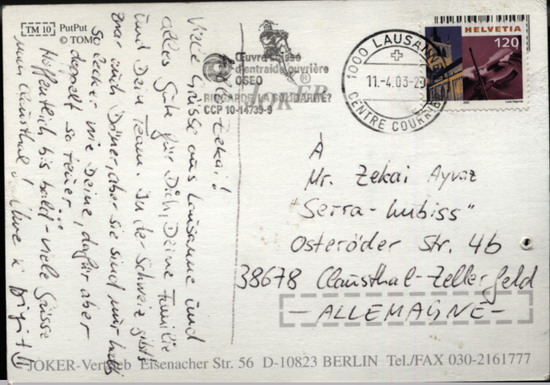 TM 10 PutPut
© TOMC
Hallo Zekai!
Viele Grüsse aus Lausanne und
alles Gute für Dich, Deine Familie
und Dein Team. In der Schweiz gibt's
zwar auch Döner, aber sie sind nur halb
so lecker wie Deine, dafür aber
doppelt so teuer...
Hoffentlich bis bald - viele Grüsse
nach Clausthal Uwe & Birgit
Œuvre suisse
d'entraide ouvrière
OSEO
REGARDE LA SOLIDARITÉ?
CCP 10-14739-9
JOKER
1000 LAUSANNE
11.-4.03-
CENTRE COURRIER
HELVETIA
120
À
Mr. Zekai Ayvaz
"Serra-Imbiss"
Osteröder Str. 4b
38678 Clausthal-Zellerfeld
-ALLEMAGNE-
JOKER-Vertrieb Eisenacher Str. 56 D-10823 BERLIN Tel./FAX 030-2161777